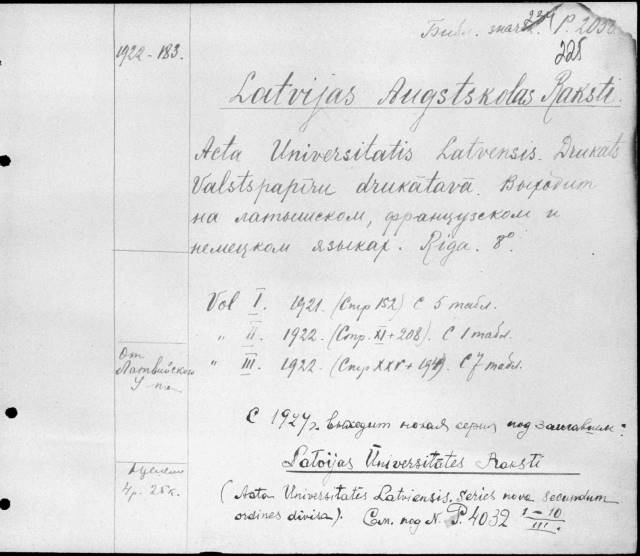 Библ. P. 2032
225
1922 - 183.
Latvijas Augstskolas Raksti.
Acta Universitatis Latvensis. Drukāts
Valstspapīru drukātavā. Выходит
на латышском, французском и
немецком языках. Rīga. 8°.
Vol I. 1921. (Стр 152) С 5 табл.
" II. 1922. (Стр. XI + 208). С 1 табл.
" III. 1922. (Стр XXV + 194). С 7 табл.
От
Латвийского
У-та
С 1927 г. выходит новая серия под заглавием:
Latvijas Universitātes Raksti
(Acta Universitatis Latviensis. series nova secundum
ordines divisa). См. под N. P. 4032 I-10
III.
4 р. 25 к.